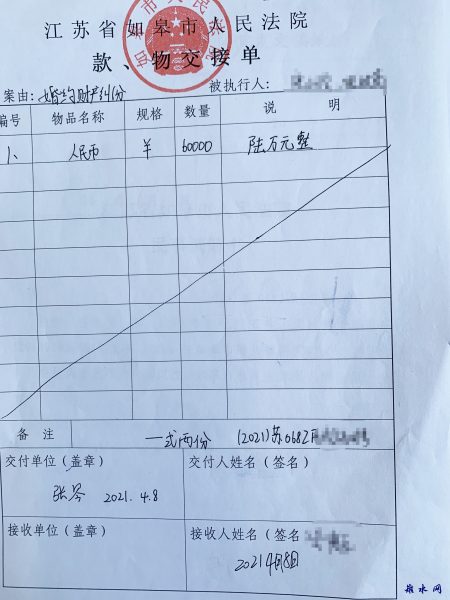 江苏省如皋市人民法院
款、物交接单
案由：婚约财产纠纷 被执行人：
编号 物品名称 规格 数量 说 明
1、 人民币 ¥ 60000 陆万元整
备 注 一式两份 (2021)苏0682
交付单位（盖章） 交付人姓名（签名）
张岑 2021.4.8
接收单位（盖章） 接收人姓名（签名
2021年4月8日
雉水网